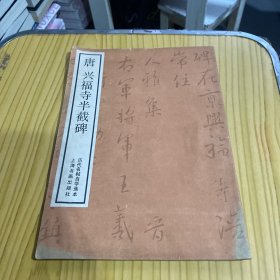 唐 兴福寺半截碑
历代名帖自学选本
上海书画出版社
碑在京兴福寺
常住
人雅集晋
右军将军王羲